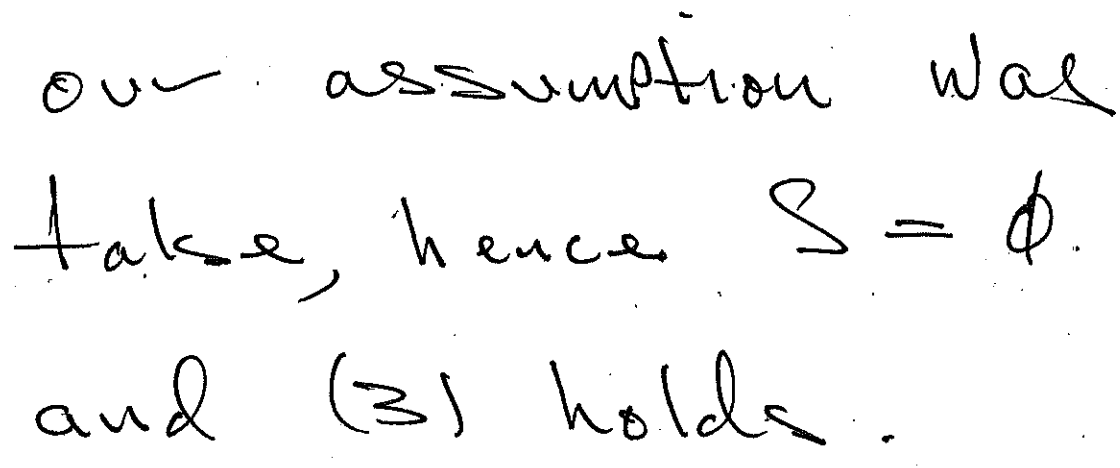 our assumption was
false, hence S = ϕ.
and (3) holds.